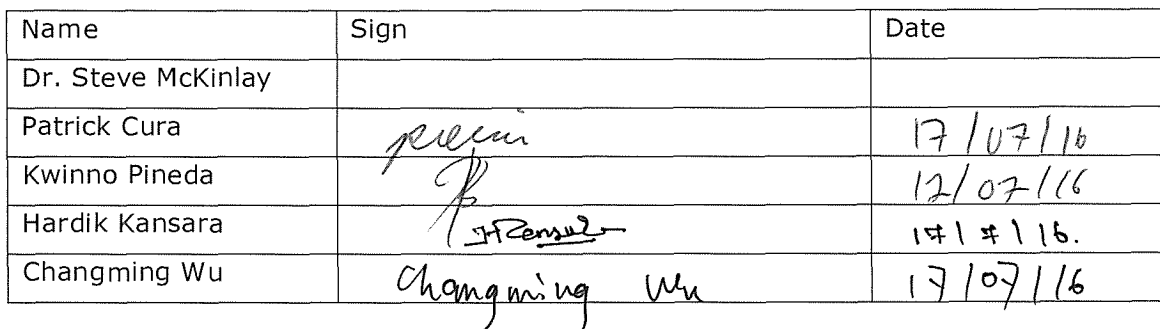 Name Sign Date
Dr. Steve McKinlay
Patrick Cura 17/07/16
Kwinno Pineda 17/07/16
Hardik Kansara 17/7/16.
Changming Wu Changming Wu 17/07/16